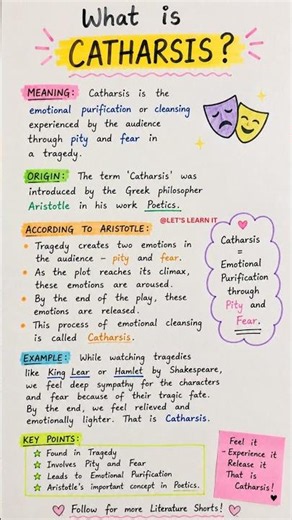 What is
CATHARSIS?
MEANING: Catharsis is the
emotional purification or cleansing
experienced by the audience
through pity and fear in
a tragedy.
ORIGIN: The term 'Catharsis' was
introduced by the Greek philosopher
Aristotle in his work Poetics.
@LET'S LEARN IT
ACCORDING TO ARISTOTLE:
• Tragedy creates two emotions in
the audience – pity and fear.
• As the plot reaches its climax,
these emotions are aroused.
• By the end of the play, these
emotions are released.
• This process of emotional cleansing
is called Catharsis.
Catharsis
=
Emotional
Purification
through
Pity and
Fear.
EXAMPLE: While watching tragedies
like King Lear or Hamlet by Shakespeare,
we feel deep sympathy for the characters
and fear because of their tragic fate.
By the end, we feel relieved and
emotionally lighter. That is Catharsis.
KEY POINTS:
☆ Found in Tragedy
☆ Involves Pity and Fear
☆ Leads to Emotional Purification
☆ Aristotle's important concept in Poetics.
Feel it
- Experience it
Release it
That is
Catharsis!
Follow for more Literature Shorts!